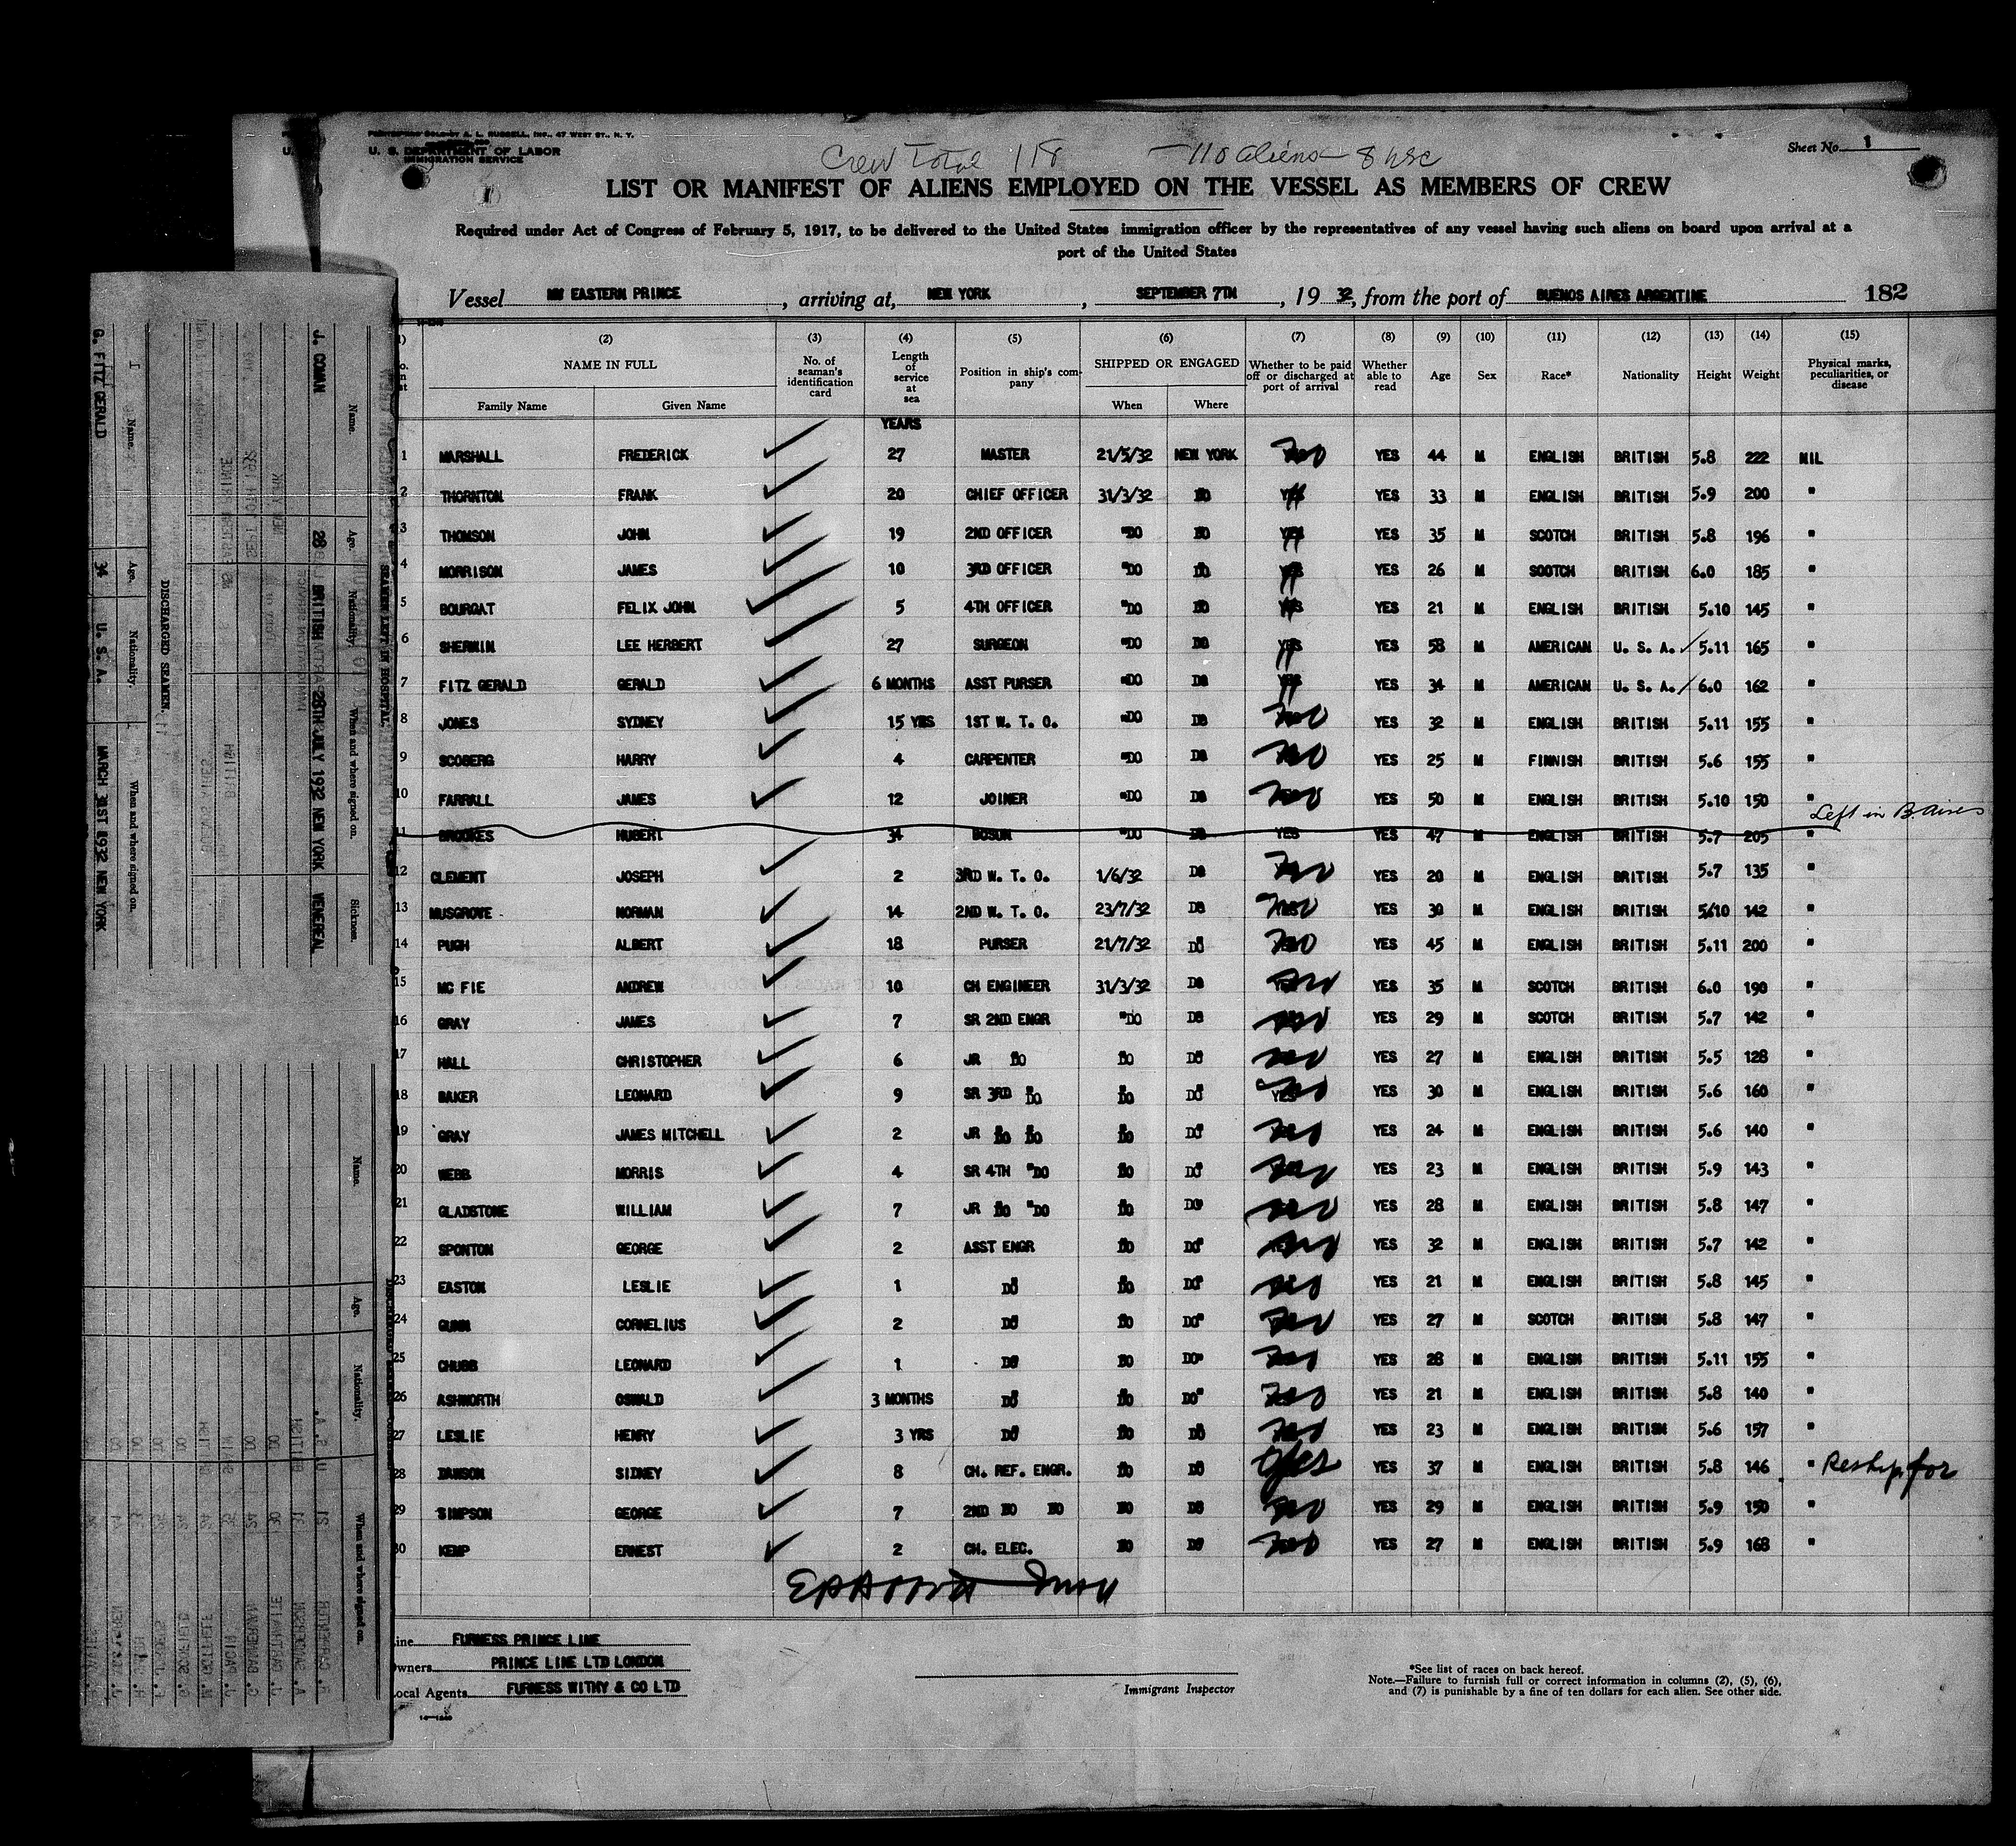 U. S. DEPARTMENT OF LABOR
IMMIGRATION SERVICE
Crew Total 118 — 110 aliens — 8 usc
Sheet No. 1
LIST OR MANIFEST OF ALIENS EMPLOYED ON THE VESSEL AS MEMBERS OF CREW
Required under Act of Congress of February 5, 1917, to be delivered to the United States immigration officer by the representatives of any vessel having such aliens on board upon arrival at a
port of the United States
Vessel MV EASTERN PRINCE, arriving at, NEW YORK, SEPTEMBER 7TH, 19 32, from the port of BUENOS AIRES ARGENTINE 182
(2) (3) (4) (5) (6) (7) (8) (9) (10) (11) (12) (13) (14) (15)
NAME IN FULL Family Name Given Name No. of seaman's identification card Length of service at sea Position in ship's company SHIPPED OR ENGAGED When Where Whether to be paid off or discharged at port of arrival Whether able to read Age Sex Race* Nationality Height Weight Physical marks, peculiarities, or disease
YEARS
1 MARSHALL FREDERICK 27 MASTER 21/5/32 NEW YORK no YES 44 M ENGLISH BRITISH 5.8 222 NIL
2 THORNTON FRANK 20 CHIEF OFFICER 31/3/32 DO YES YES 33 M ENGLISH BRITISH 5.9 200 "
3 THOMSON JOHN 19 2ND OFFICER "DO DO YES YES 35 M SCOTCH BRITISH 5.8 196 "
4 MORRISON JAMES 10 3RD OFFICER "DO DO YES YES 26 M SCOTCH BRITISH 6.0 185 "
5 BOURGAT FELIX JOHN 5 4TH OFFICER "DO DO YES YES 21 M ENGLISH BRITISH 5.10 145 "
6 SHERWIN LEE HERBERT 27 SURGEON "DO DO YES YES 58 M AMERICAN U. S. A. 5.11 165 "
7 FITZ GERALD GERALD 6 MONTHS ASST PURSER "DO DO YES YES 34 M AMERICAN U. S. A. 6.0 162 "
8 JONES SYDNEY 15 YRS 1ST W. T. O. "DO DO no YES 32 M ENGLISH BRITISH 5.11 155 "
9 SCOBERG HARRY 4 CARPENTER "DO DO no YES 25 M FINNISH BRITISH 5.6 155 "
10 FARRALL JAMES 12 JOINER "DO DO no YES 50 M ENGLISH BRITISH 5.10 150 "
Left in B. Aires
11 BROOKES HUBERT 34 BOSUN "DO DO YES YES 47 M ENGLISH BRITISH 5.7 205 "
12 CLEMENT JOSEPH 2 3RD W. T. O. 1/6/32 DO no YES 20 M ENGLISH BRITISH 5.7 135 "
13 MUSGROVE NORMAN 14 2ND W. T. O. 23/7/32 DO no YES 30 M ENGLISH BRITISH 5/10 142 "
14 PUGH ALBERT 18 PURSER 21/7/32 DO no YES 45 M ENGLISH BRITISH 5.11 200 "
15 MC FIE ANDREW 10 CH ENGINEER 31/3/32 DO no YES 35 M SCOTCH BRITISH 6.0 190 "
16 GRAY JAMES 7 SR 2ND ENGR "DO DO no YES 29 M SCOTCH BRITISH 5.7 142 "
17 HALL CHRISTOPHER 6 JR DO DO DO no YES 27 M ENGLISH BRITISH 5.5 128 "
18 BAKER LEONARD 9 SR 3RD DO DO DO no YES 30 M ENGLISH BRITISH 5.6 160 "
19 GRAY JAMES MITCHELL 2 JR DO DO DO DO no YES 24 M ENGLISH BRITISH 5.6 140 "
20 WEBB MORRIS 4 SR 4TH "DO DO DO no YES 23 M ENGLISH BRITISH 5.9 143 "
21 GLADSTONE WILLIAM 7 JR DO "DO DO DO no YES 28 M ENGLISH BRITISH 5.8 147 "
22 SPONTON GEORGE 2 ASST ENGR DO DO no YES 32 M ENGLISH BRITISH 5.7 142 "
23 EASTON LESLIE 1 DO DO DO no YES 21 M ENGLISH BRITISH 5.8 145 "
24 GUNN CORNELIUS 2 DO DO DO no YES 27 M SCOTCH BRITISH 5.8 147 "
25 CHUBB LEONARD 1 DO DO DO no YES 28 M ENGLISH BRITISH 5.11 155 "
26 ASHWORTH OSWALD 3 MONTHS DO DO DO no YES 21 M ENGLISH BRITISH 5.8 140 "
27 LESLIE HENRY 3 YRS DO DO DO no YES 23 M ENGLISH BRITISH 5.6 157 "
28 DAWSON SIDNEY 8 CH. REF. ENGR. DO DO yes YES 37 M ENGLISH BRITISH 5.8 146 " Reship for
29 SIMPSON GEORGE 7 2ND DO DO DO DO no YES 29 M ENGLISH BRITISH 5.9 150 "
30 KEMP ERNEST 2 CH. ELEC. DO DO no YES 27 M ENGLISH BRITISH 5.9 168 "
Line FURNESS PRINCE LINE
Owners PRINCE LINE LTD LONDON
Local Agents FURNESS WITHY & CO LTD
Immigrant Inspector
*See list of races on back hereof.
Note.—Failure to furnish full or correct information in columns (2), (5), (6),
and (7) is punishable by a fine of ten dollars for each alien. See other side.
SEAMEN LEFT IN HOSPITAL.
Name. Age. Nationality. When and where signed on. Sickness.
J. COWAN 28 BRITISH 28TH JULY 1932 NEW YORK VENEREAL
DISCHARGED SEAMEN.
Name. Age. Nationality. When and where signed on.
G. FITZ GERALD 34 U. S. A. MARCH 31ST 1932 NEW YORK
Name. Age. Nationality. When and where signed on.